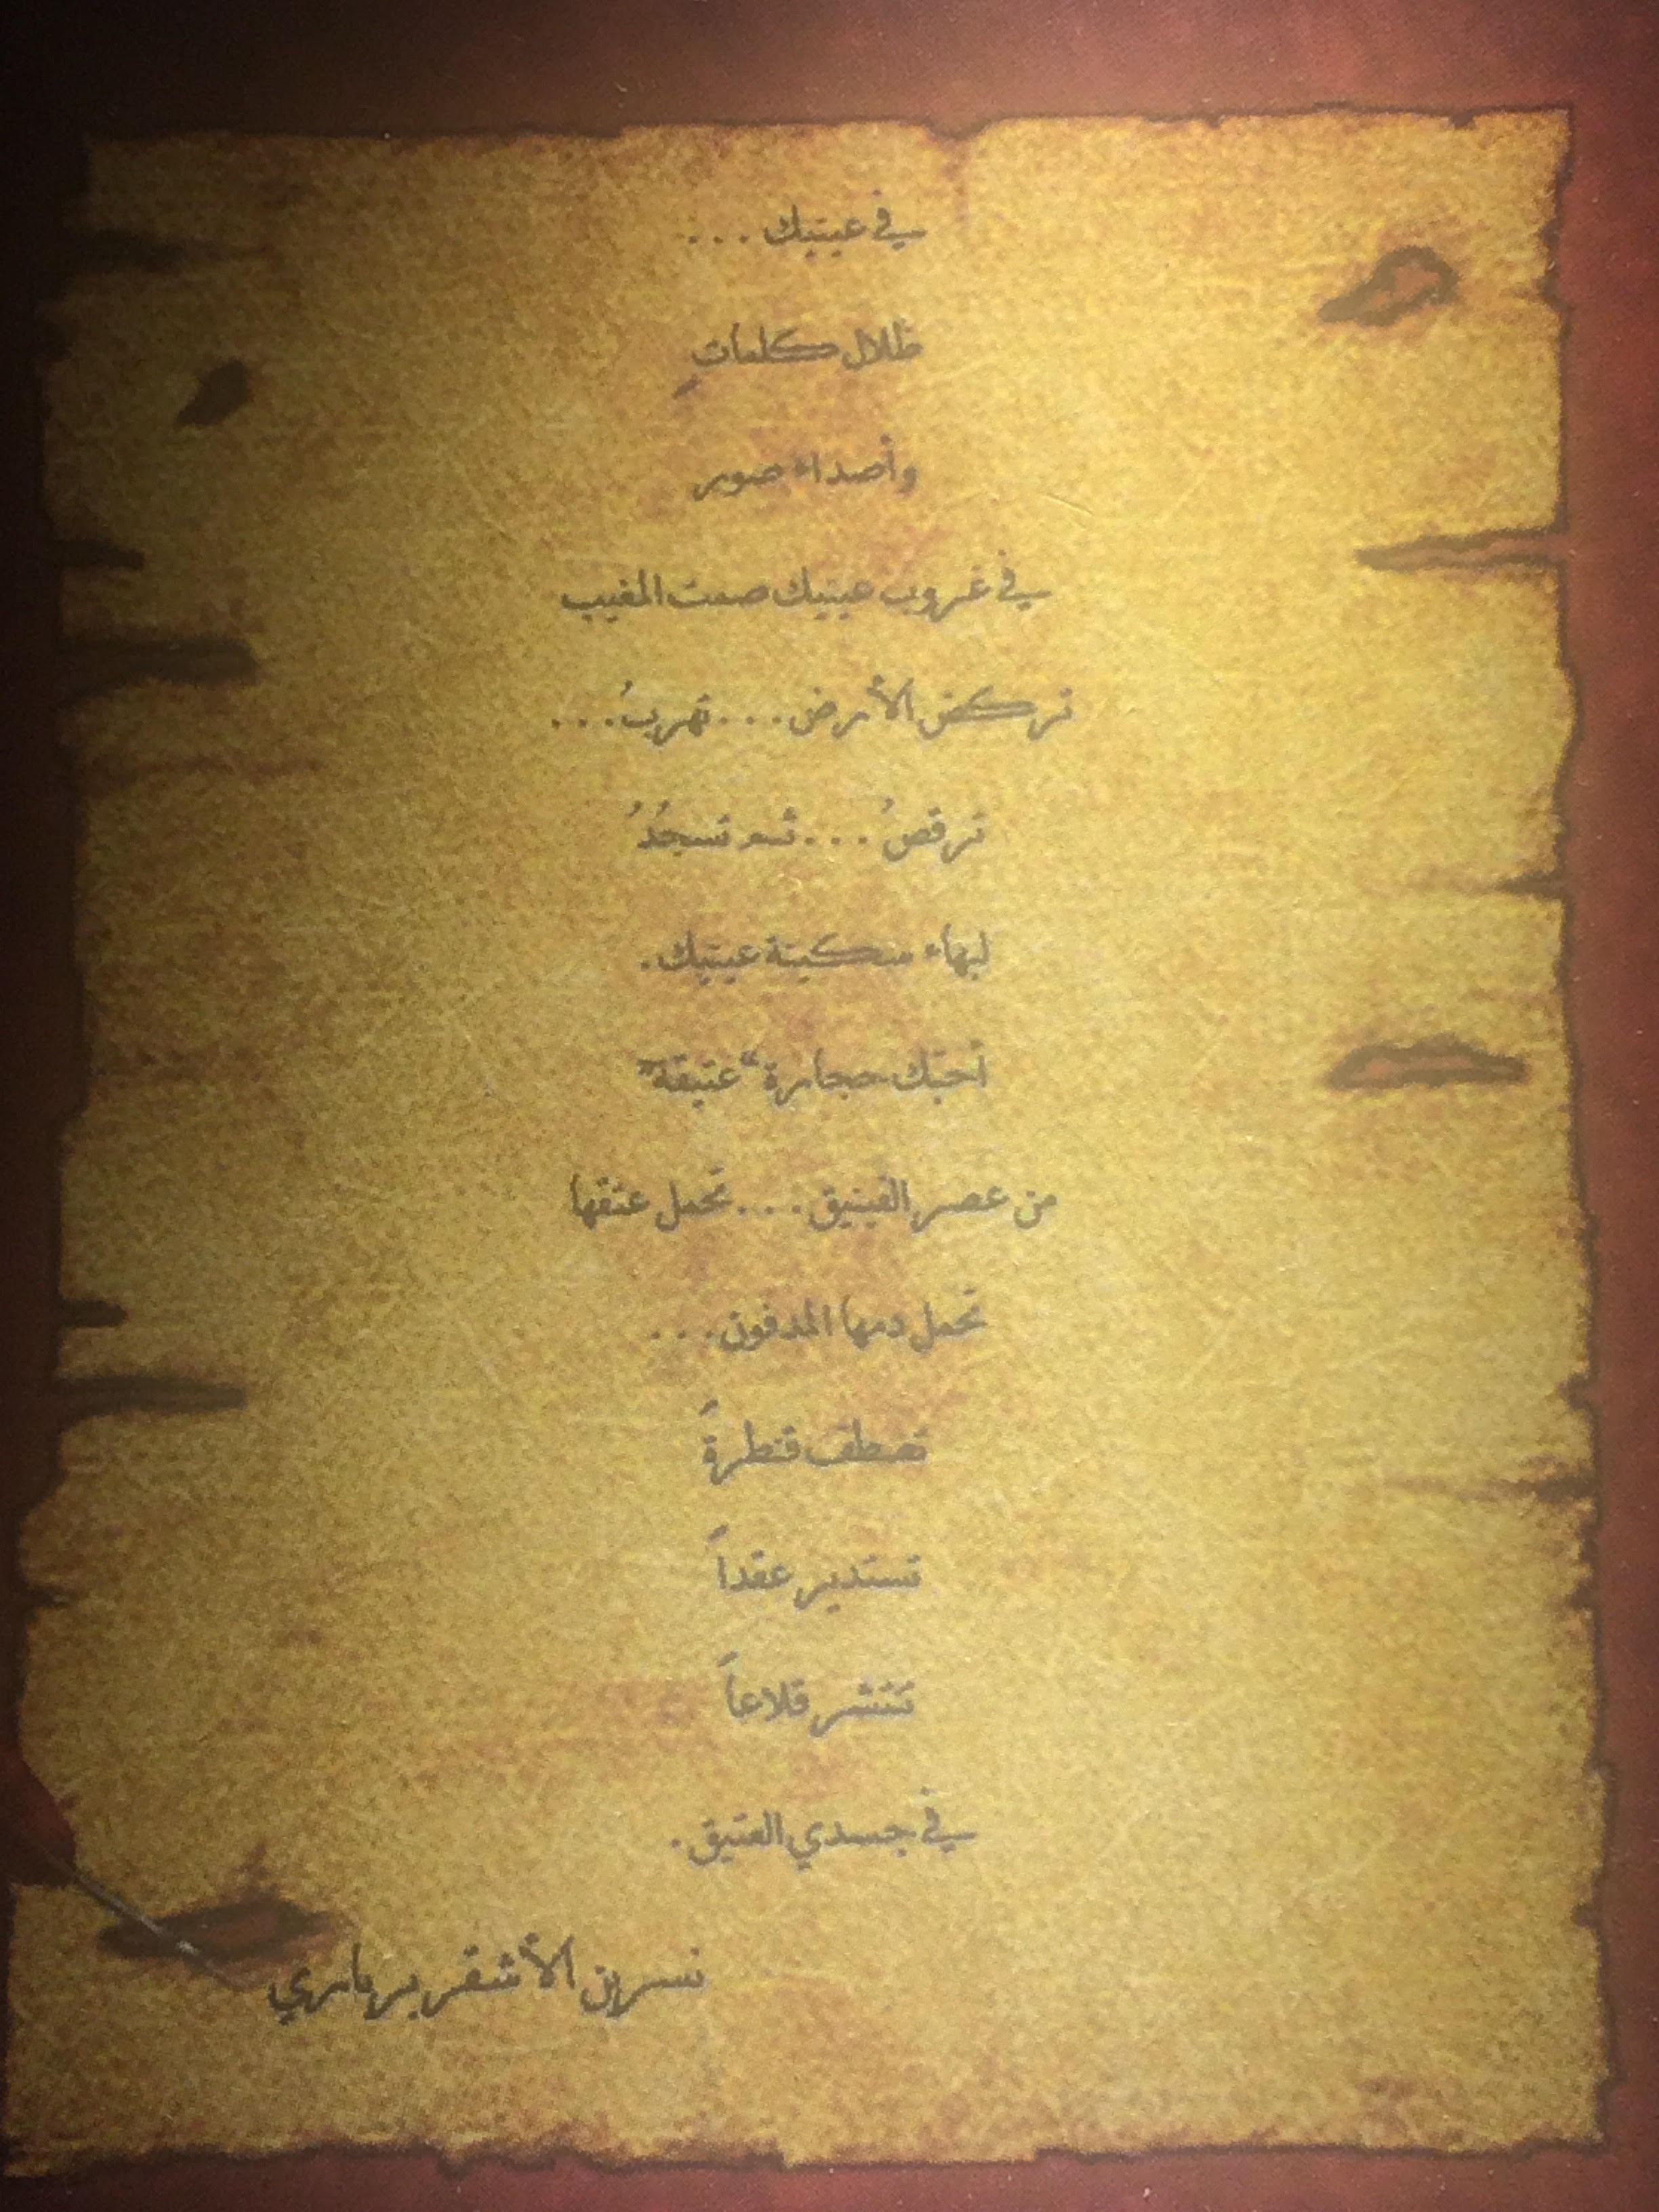 في عينيك...
ظلال كلماتٍ
وأصداء صور
في غروب عينيك صمت المغيب
تركض الأرض...تهربُ...
ترقصُ...ثم تسجُدُ
لبهاء سكينة عينيك.
أحبّك حجارة “عتيقة”
من عصر الفينيق...تحمل عتقها
تحمل دمها المدفون...
تصطف قنطرةً
تستدير عقداً
تنتشر قلاعاً
في جسدي العتيق.
نسرين الأشقر بربامري